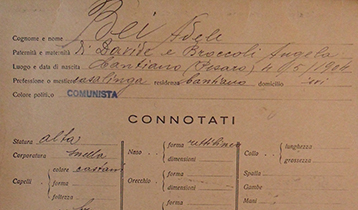 Cognome e nome Bei Adele
Paternità e maternità di Davide e Broccoli Angela
Luogo e data di nascita Cantiano (Pesaro) 4/5/1904
Professione o mestiere casalinga residenza Cantiano domicilio ivi
Colore politico COMUNISTA
CONNOTATI
Statura alta
Corporatura snella
Capelli colore castani forma foltezza
Naso forma rettilineo dimensioni
Orecchio forma dimensioni
Collo lunghezza grossezza
Spalle
Gambe
Mani